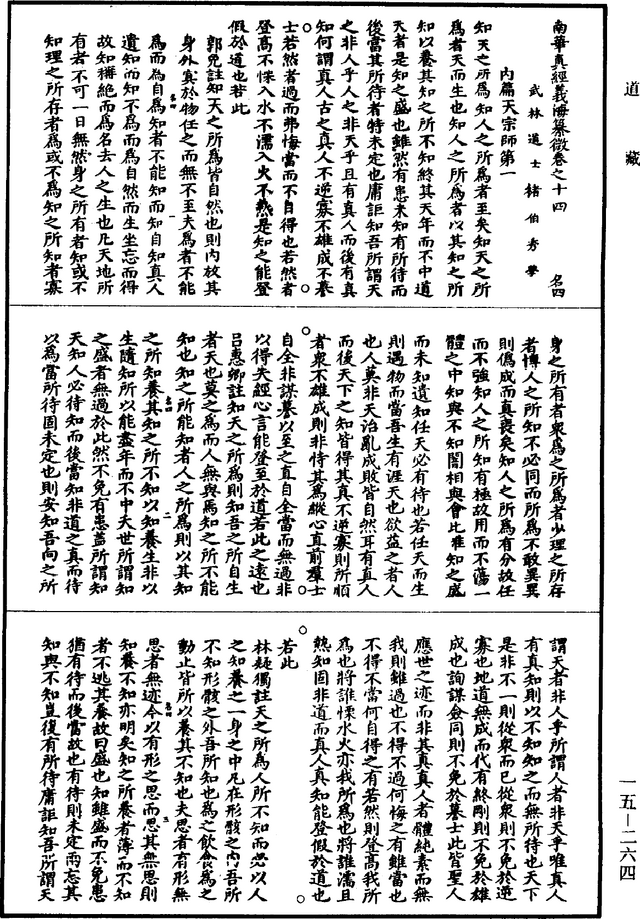 道藏
南華真經義海纂微卷之十四　名四
武林道士褚伯秀學
內篇大宗師第一
知天之所爲知人之所爲者至矣知天之所
爲者天而生也知人之所爲者以其知之所
知以養其知之所不知終其天年而不中道
夭者是知之盛也雖然有患夫知有所待而
後當其所待者特未定也庸詎知吾所謂天
之非人乎人之非天乎且有真人而後有真
知何謂真人古之真人不逆寡不雄成不謩
士若然者過而弗悔當而不自得也若然者
登高不慄入水不濡入火不熱是知之能登
假於道也若此
郭象註知天之所爲皆自然也則內放其
身外冥於物任之而無不至夫爲者不能
爲而爲自爲知者不能知而知自知真人
遺知而知不爲而爲自然而生坐忘而得
故知稱絕而爲名去人之生也凡天地所
有者不可一日無然身之所有者知或不
知理之所存者爲或不爲知之所知者寡
身之所有者衆爲之所爲者少理之所存
者博人之所知不必同而所爲不敢異異
則僞成而真喪矣知人之所爲有分故任
而不強知人之所知有極故用而不蕩一
體之中知與不知闇相與會比雖知之盛
而未知遺知任天必有待也若任天而生
則遇物而當吾生有涯天也欲益之者人
也人莫非天治亂成敗皆自然耳有真人
而後天下之知皆得其真不逆寡則所順
者衆不雄成則非恃其爲縱心直前羣士
自全非謀謩以至之直自全當而無過非
以得失經心言能登至於道若此之遠也
呂惠卿註知天之所爲則知吾之所自生
者天也莫之爲而人無與焉知之所不能
知也知之所能知者人之所爲則以其知
之所知養其知之所不知以知養生非以
生隨知所以能盡年而不中夭世所謂知
之盛者無過於此然不免有患蓋所謂知
天知人必待知而後當知非道之真而待
以爲當所待固未定也則安知吾向之所
謂天者非人乎所謂人者非天乎唯真人
有真知則以不知知之而無所待也天下
是非不一則從衆而已從衆則不免於逆
寡也地道無成而代有終剛則不免於雄
成也詢謀僉同則不免於謩士此皆聖人
應世之迹而非其真真人者體純素而無
我則雖過也不得不過何悔之有雖當也
不得不當何自得之有若然則登高我所
爲也將誰慄水火亦我所爲也將誰濡且
熱知固非道而真人真知能登假於道也
若此
林疑獨註天之所爲人所不知而必以人
之知養之一身之中凡在形骸之內吾所
不知形骸之外吾所知也爲之飲食爲之
動止皆所以養其不知也夫思者有形無
思者無迹今以有形之思而思其無思則
知養不知亦明矣知之所養者薄而不知
者不逃其養故曰盛也知雖盛而不免患
猶有待而後當故也有待則未定兩忘其
知與不知豈復有所待庸詎知吾所謂天
一五—二六四